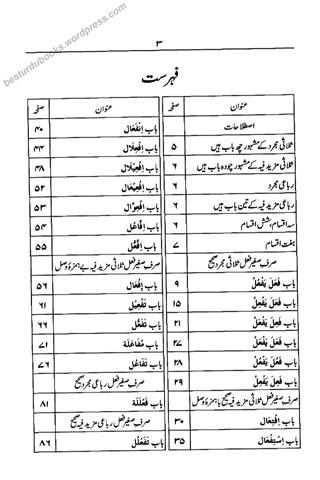 besturdubooks.wordpress.com
۳
فہرست
عنوان صفحہ
اصطلاحات
ثلاثی مجرد کے مشہور چھ باب ہیں ۵
ثلاثی مزید فیہ کے مشہور چودہ باب ہیں ۶
رباعی مجرد ۶
رباعی مزید فیہ کے تین باب ہیں ۶
سہ اقسام، شش اقسام ۶
ہفت اقسام ۷
صرفِ صغیر فعل ثلاثی مجرد صحیح
باب فعل یفعل ۹
باب فعل یفعل ۱۵
باب فعل یفعل ۲۱
باب فعل یفعل ۲۷
باب فعل یفعل ۲۸
باب فعل یفعل ۲۹
صرفِ صغیر فعل ثلاثی مزید فیہ صحیح با ہمزۂ وصل
باب اِفْتِعَال ۳۰
باب اِسْتِفْعَال ۳۵
عنوان صفحہ
باب اِنْفِعَال ۴۰
باب اِفْعِلَال ۴۴
باب اِفْعِیْلَال ۴۸
باب اِفْعِیْعَال ۵۲
باب اِفْعِوَّال ۵۳
باب اِفَّاعُل ۵۴
باب اِفَّعُّل ۵۵
صرفِ صغیر فعل ثلاثی مزید فیہ بے ہمزۂ وصل
باب اِفْعَال ۵۶
باب تَفْعِیْل ۶۱
باب تَفَعُّل ۶۶
باب مُفَاعَلَة ۷۱
باب تَفَاعُل ۷۶
صرفِ صغیر فعل رباعی مجرد صحیح
باب فَعْلَلَة ۸۱
صرفِ صغیر فعل رباعی مزید فیہ صحیح
باب تَفَعْلُل ۸۶